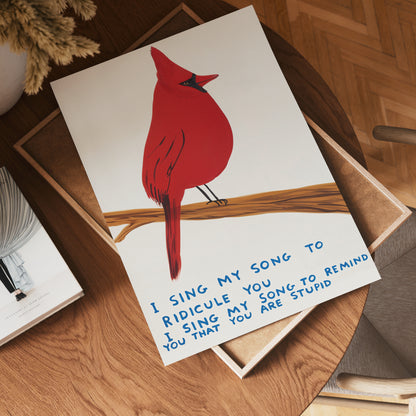 I SING MY SONG TO
RIDICULE YOU
I SING MY SONG TO REMIND
YOU THAT YOU ARE STUPID